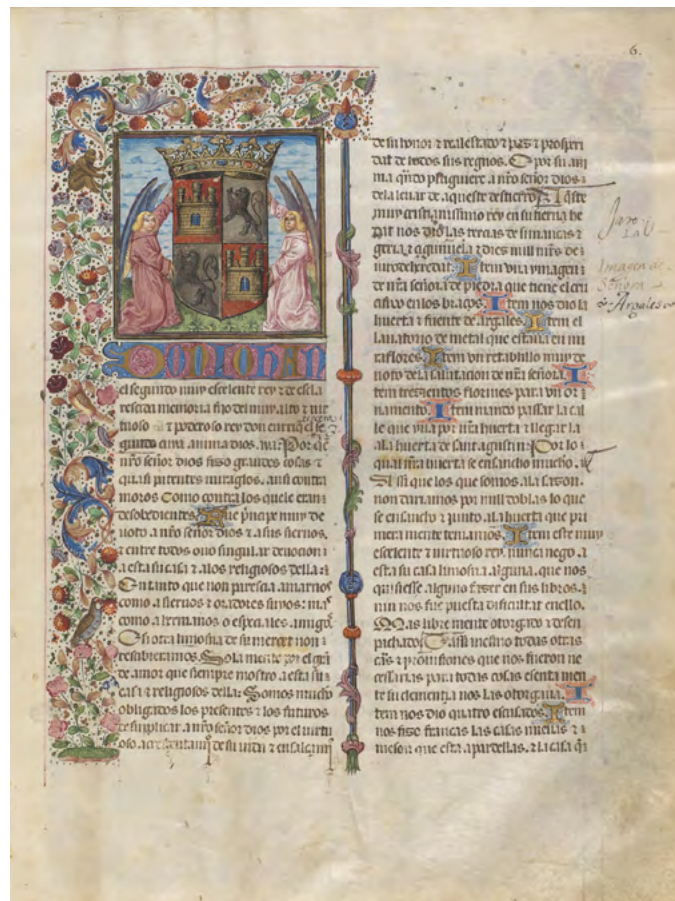 6.
DON IOHAN
el segundo muy escelente rey & de escla
rescda memoria fijo del muy alto & uir
tuoso & poderoso rey don enrriq el
tercero
guntᷤ cuya anima dios aya Por q̄
nr̃o señor dios fiso grandes cosas &
quasi patentes miraglos. ansi contra
moros Como contra los quele eran
desobedientes. fue prinçipe muy de
uoto a nr̃o señor dios & a sus sieruos.
& entre todos ouo singular deuoçion
a esta su casa & alos religiosos della:
En tanto que non paresçia amarnos
como a sieruos & oradores suyos: mas
como a hermanos o espeçiales amigos
E si otra limosna de su merçet non
resçibieramos. Sola mente por el grã
de amor que siempre mostro a esta su
casa & religiosos della: Somos mucho
obligados los presentes & los futuros
de suplicar a nr̃o señor dios por el uirtu
oso. acresçentamiẽto de su uida & ensalçamiẽto
de su honor & real estado & paz & prosperi
dat de todos sus regnos. E por su ani
ma quãdo pluguiere a nr̃o señor dios
dela leuar de aqueste destierro. Este
muy cristianissimo rey en su tierna he
dat nos dio las terçias de simancas &
geria, & çiguñuela & dies mill mr̃s de
iuro de heredat. Item vna ymagen
de nr̃a señora de piedra que tiene el cru
çifixo en los braços. Item nos dio la
huerta & fuente de argales. Item el
lauatorio de metal que estaua en mi
raflores. Item vn retablillo muy de
uoto dela salutaçion de nr̃a señora. I
tem trezientos florines para vn or
namento. Item mando passar la cal
le que yua por nr̃a huerta & llegarla
ala huerta de sant agustin: Por lo
qual nr̃a huerta se ensancho mucho.
Assi que los que somos ala sazon
non dariamos por mill doblas lo que
se ensancho & junto ala huerta que pri
mera mente teniamos. Item este muy
escelente & uirtuoso rey. nunca nego a
esta su casa limosna alguna. que nos
quisiesse alguno fazer en sus libros.
nin nos fue puesta dificultat en ello.
Mas libre mente otorgado & desen
pachado. E assi mesmo todas otras
cartas & prouisiones que nos fueron ne
çessarias para todas cosas esenta men
te su clemençia nos las otorgaua. I
tem nos dio quatro escusados. Item
nos fiso francas las casas nueuas &
meson que esta a par dellas. & la casa q̄
Juro
Imagen de
Señora
Argales